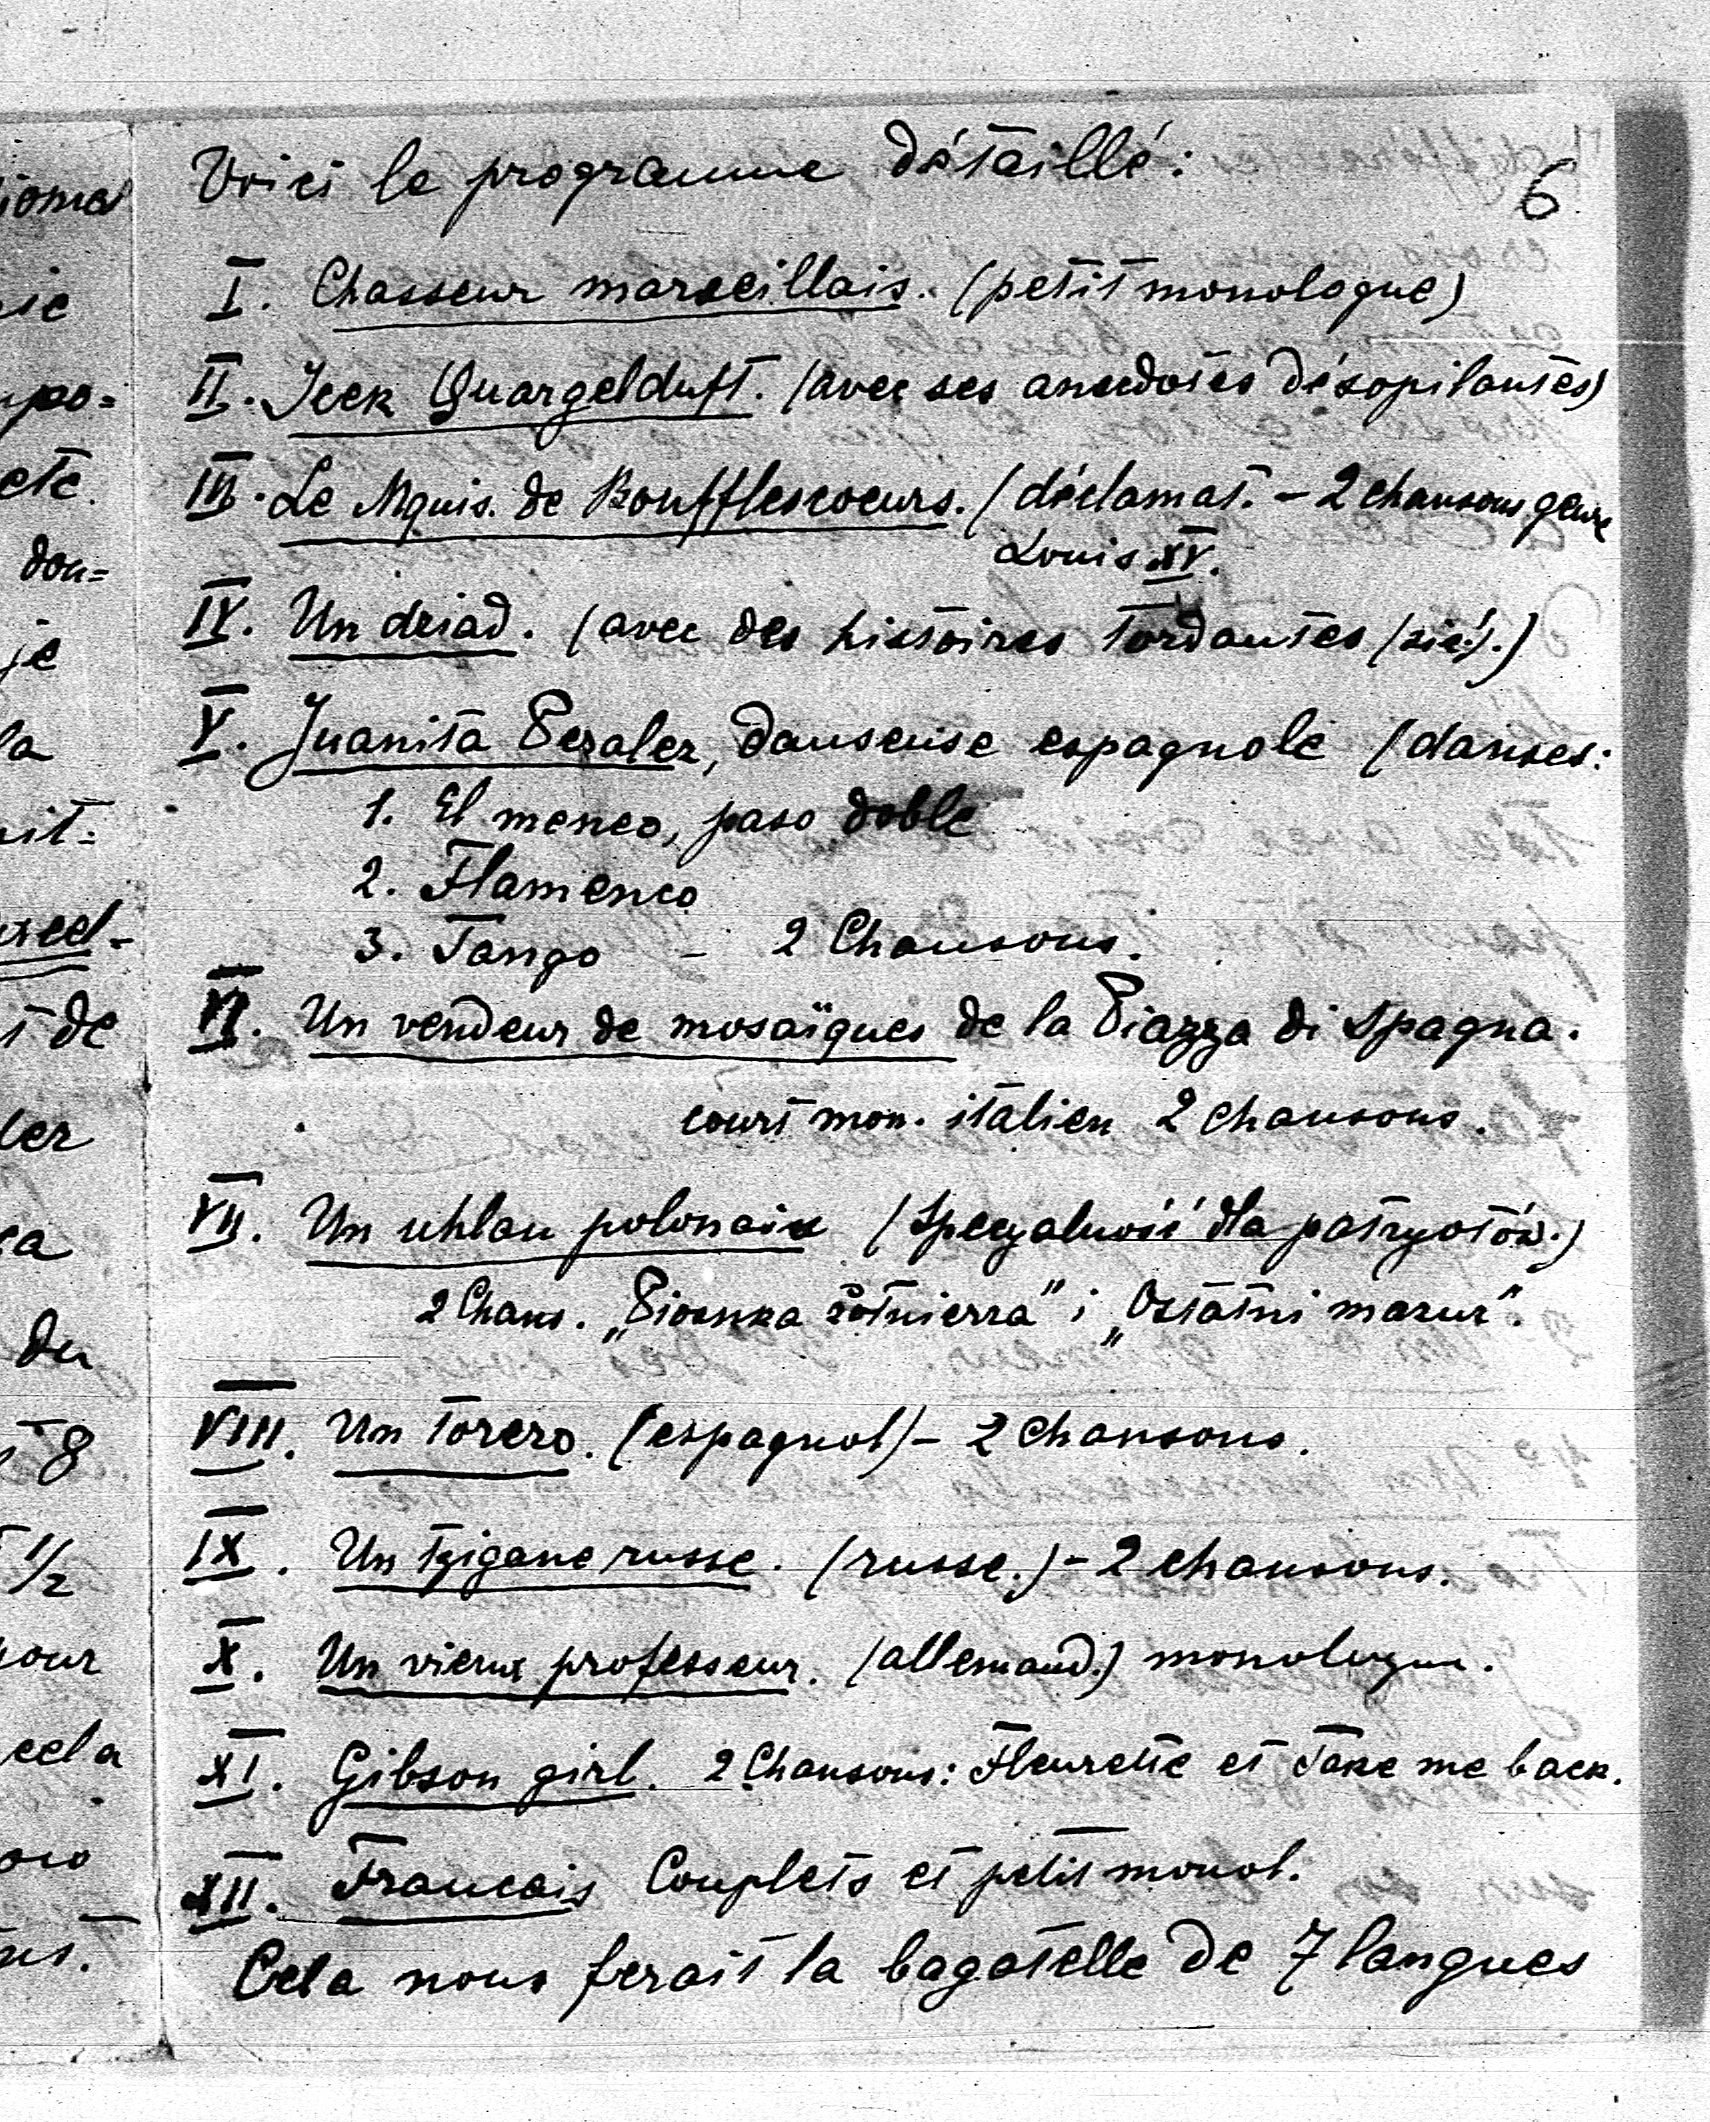 Voici le programme détaillé:
6
I. Chasseur marseillais. (petit monologue)
II. Icek Quargelduft. (avec ses anecdotes désopilantes)
III. Le Mquis. de Boufflescoeurs. (déclamat. - 2 chansons genre
Louis XV.
IV. Un dziad. (avec des histoires tordantes (sic!).)
V. Juanita Peralez, danseuse espagnole (danses:
1. El meneo, paso doble
2. Flamenco
3. Tango - 2 Chansons.
VI. Un vendeur de mosaïques de la Piazza di Spagna.
court mon. italien 2 chansons.
VII. Un uhlan polonais (Specyalność dla patryotów.)
2 Chans. „Piosnka żołnierza" i „Ostatni mazur".
VIII. Un Torero. (espagnol) - 2 chansons.
IX. Un tzigane russe. (russe.) - 2 chansons.
X. Un vieux professeur. (allemand.) monologue.
XI. Gibson girl. 2 Chansons: Fleurette et Take me back.
XII. Francais Couplets et petit monol.
Cela nous ferait la bagatelle de 7 langues